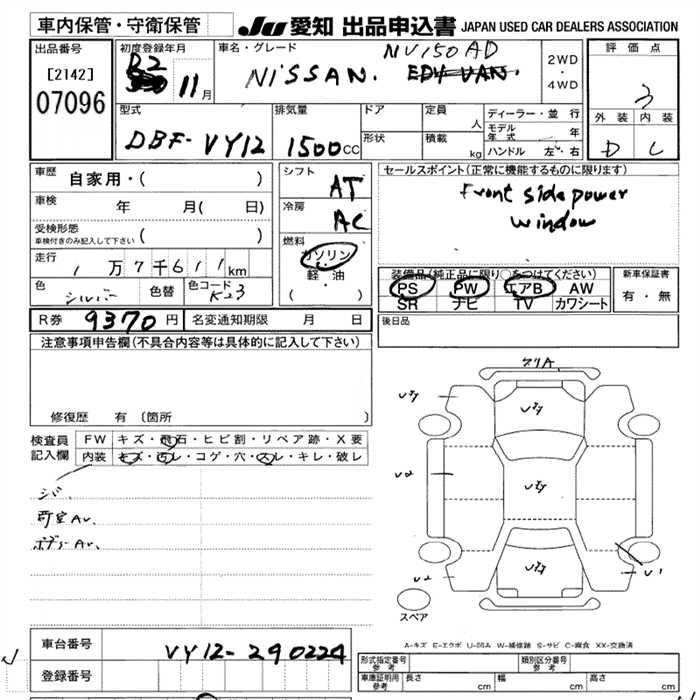 車内保管・守衛保管
JU 愛知 出品申込書 JAPAN USED CAR DEALERS ASSOCIATION
出品番号
[2142]
07096
初度登録年月
R2 11月
車名・グレード
NV150 AD
NISSAN. EDY VAN.
2WD
・
4WD
評価点
3
外装 内装
D C
型式
DBF-VY12
排気量
1500cc
ドア
形状
定員 人
積載 kg
ディーラー・並行
モデル年式 年
ハンドル 左・右
車歴 自家用・( )
車検 年 月( 日)
受検形態
車検付きのみ記入して下さい ( )
走行 1万7千611km
色 シルバー 色替 色コード K23
シフト AT
冷房 AC
燃料
ガソリン
軽・油
( )
セールスポイント(正常に機能するものに限ります)
Front side power
window
装備品(純正品に限り○をつけてください)
PS PW エアB AW
SR ナビ TV カワシート
新車保証書
有・無
R券 9370円 名変通知期限 月 日
後日品
注意事項申告欄(不具合内容等は具体的に記入して下さい)
修復歴 有 [箇所 ]
検査員
記入欄
FW キズ・飛石・ヒビ割・リペア跡・X要
内装 キズ・汚レ・コゲ・穴・スレ・キレ・破レ
荷室AU.
ボデーAU.
クリA.
U2
U2
U1
スペア
A-キズ E-エクボ U-凹み W-補修跡 S-サビ C-腐食 XX-交換済
車台番号 VY12-290224
登録番号
形式指定番号
参考
類別区分番号
参考
車庫証明用
参考
長さ cm 幅 cm 高さ cm